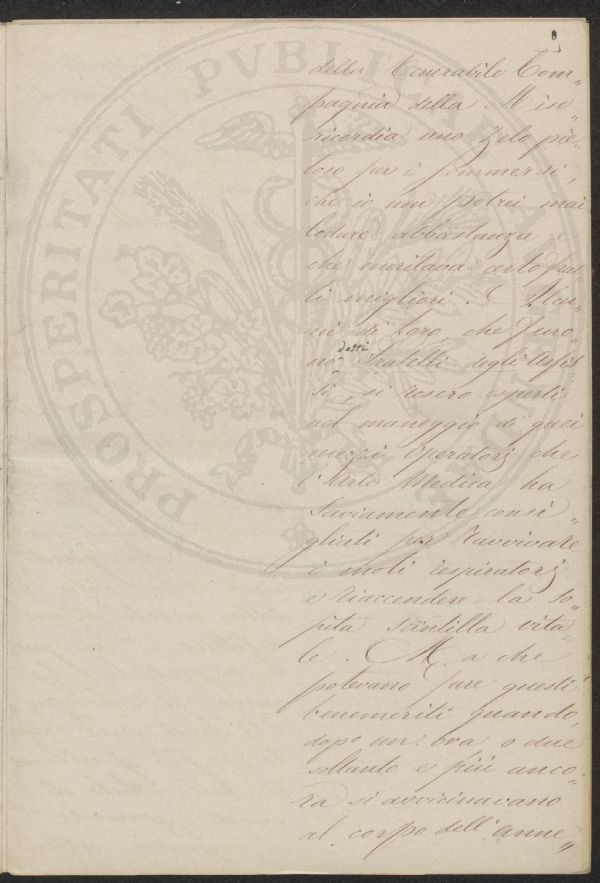 8
della Venerabile Com„
pagnia della Mise„
ricordia uno zelo pie„
toso per i sommersi,
che io non potrei mai
lodare abbastanza e
che meritava certo frut
ti migliori. Alcu„
ni di loro, che furo„
no detti Fratelli degli Asfit
si, si resero esperti
nel maneggio di quei
mezzi operatorj che
l'Arte Medica ha
saviamente consi„
gliati per ravvivare
i moti respiratorj
e riaccendere la so„
pita scintilla vita„
le. Ma che
potevano fare questi
benemeriti quando,
dopo un'ora o due
soltanto e più anco„
ra si avvicinavano
al corpo dell'anne„
PROSPERITATI PVBLICAE AVGENDAE